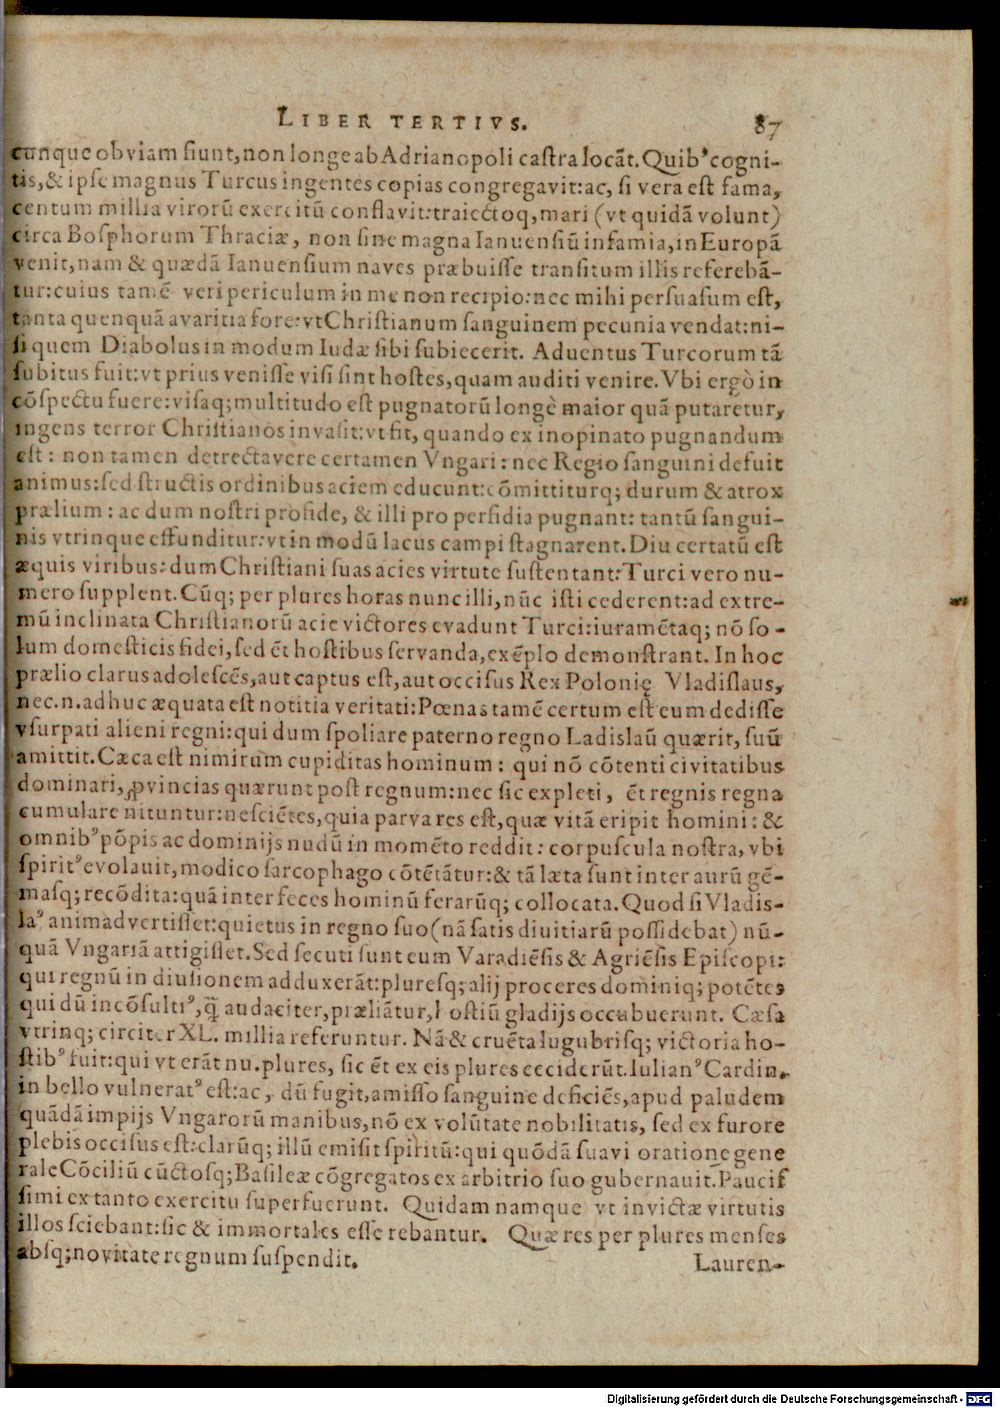 LIBER TERTIVS. 87
cunque obviam siunt, non longe ab Adrianopoli castra locāt. Quibꝰ cogni-
tis, & ipse magnus Turcus ingentes copias congregavit: ac, si vera est fama,
centum millia virorū exercitū conflavit: traiectoq, mari (vt quidā volunt)
circa Bosphorum Thraciæ, non sine magna Ianuensiū infamia, in Europā
venit, nam & quædā Ianuensium naves præbuisse transitum illis referebā-
tur: cuius tamē veri periculum in me non recipio: nec mihi persuasum est,
tanta quenquā avaritia fore: vt Christianum sanguinem pecunia vendat: ni-
si quem Diabolus in modum Iudæ sibi subiecerit. Aduentus Turcorum tā
subitus fuit: vt prius venisse visi sint hostes, quam auditi venire. Vbi ergò in
cōspectu fuere: visaq; multitudo est pugnatorū longè maior quā putaretur,
ingens terror Christianos invasit: vt fit, quando ex inopinato pugnandum
est: non tamen detrectavere certamen Vngari: nec Regio sanguini defuit
animus: sed structis ordinibus aciem educunt: cōmittiturq; durum & atrox
prælium: ac dum nostri pro fide, & illi pro perfidia pugnant: tantū sangui-
nis vtrinque effunditur: vt in modū lacus campi stagnarent. Diu certatū est
æquis viribus: dum Christiani suas acies virtute sustentant: Turci vero nu-
mero supplent. Cūq; per plures horas nunc illi, nūc isti cederent: ad extre-
mū inclinata Christianorū acie victores evadunt Turci: iuramētaq; nō so-
lum domesticis fidei, sed ēt hostibus servanda, exēplo demonstrant. In hoc
prælio clarus adolescēs, aut captus est, aut occisus Rex Polonię Vladislaus,
nec. n. adhuc æquata est notitia veritati: Pœnas tamē certum est eum dedisse
vsurpati alieni regni: qui dum spoliare paterno regno Ladislaū quærit, suū
amittit. Cæca est nimirum cupiditas hominum: qui nō cōtenti civitatibus
dominari, ꝓvincias quærunt post regnum: nec sic expleti, ēt regnis regna
cumulare nituntur: nesciētes, quia parva res est, quæ vitā eripit homini: &
omnibꝰ pōpis ac dominijs nudū in momēto reddit: corpuscula nostra, vbi
spiritꝰ evolauit, modico sarcophago cōtētātur: & tā læta sunt inter aurū gē-
masq; recōdita: quā inter feces hominū ferarūq; collocata. Quod si Vladis-
laꝰ animadvertisset: quietus in regno suo (nā satis divitiarū possidebat) nū-
quā Vngariā attigisset. Sed secuti sunt eum Varadiēsis & Agriēsis Episcopi:
qui regnū in divisionem adduxerāt: pluresq; alij proceres dominiq; potētes
qui dū incōsultiꝰ, q̄ audaciter, præliātur, hostiū gladijs occubuerunt. Cæsa
vtrinq; circiter XL. millia referuntur. Nā & cruēta lugubrisq; victoria ho-
stibꝰ fuit: qui vt erāt nu. plures, sic ēt ex eis plures ceciderūt. Iulianꝰ Cardin.
in bello vulneratꝰ est: ac, dū fugit, amisso sanguine deficiēs, apud paludem
quādā impijs Vngarorū manibus, nō ex volūtate nobilitatis, sed ex furore
plebis occisus est: clarūq; illū emisit spiritū: qui quōdā suavi oratione gene
rale Cōciliū cūctosq; Basileæ cōgregatos ex arbitrio suo gubernauit. Paucis
simi ex tanto exercitu superfuerunt. Quidam namque vt invictæ virtutis
illos sciebant: sic & immortales esse rebantur. Quæ res per plures menses
absq; novitate regnum suspendit.
Lauren-
Digitalisierung gefördert durch die Deutsche Forschungsgemeinschaft - DFG